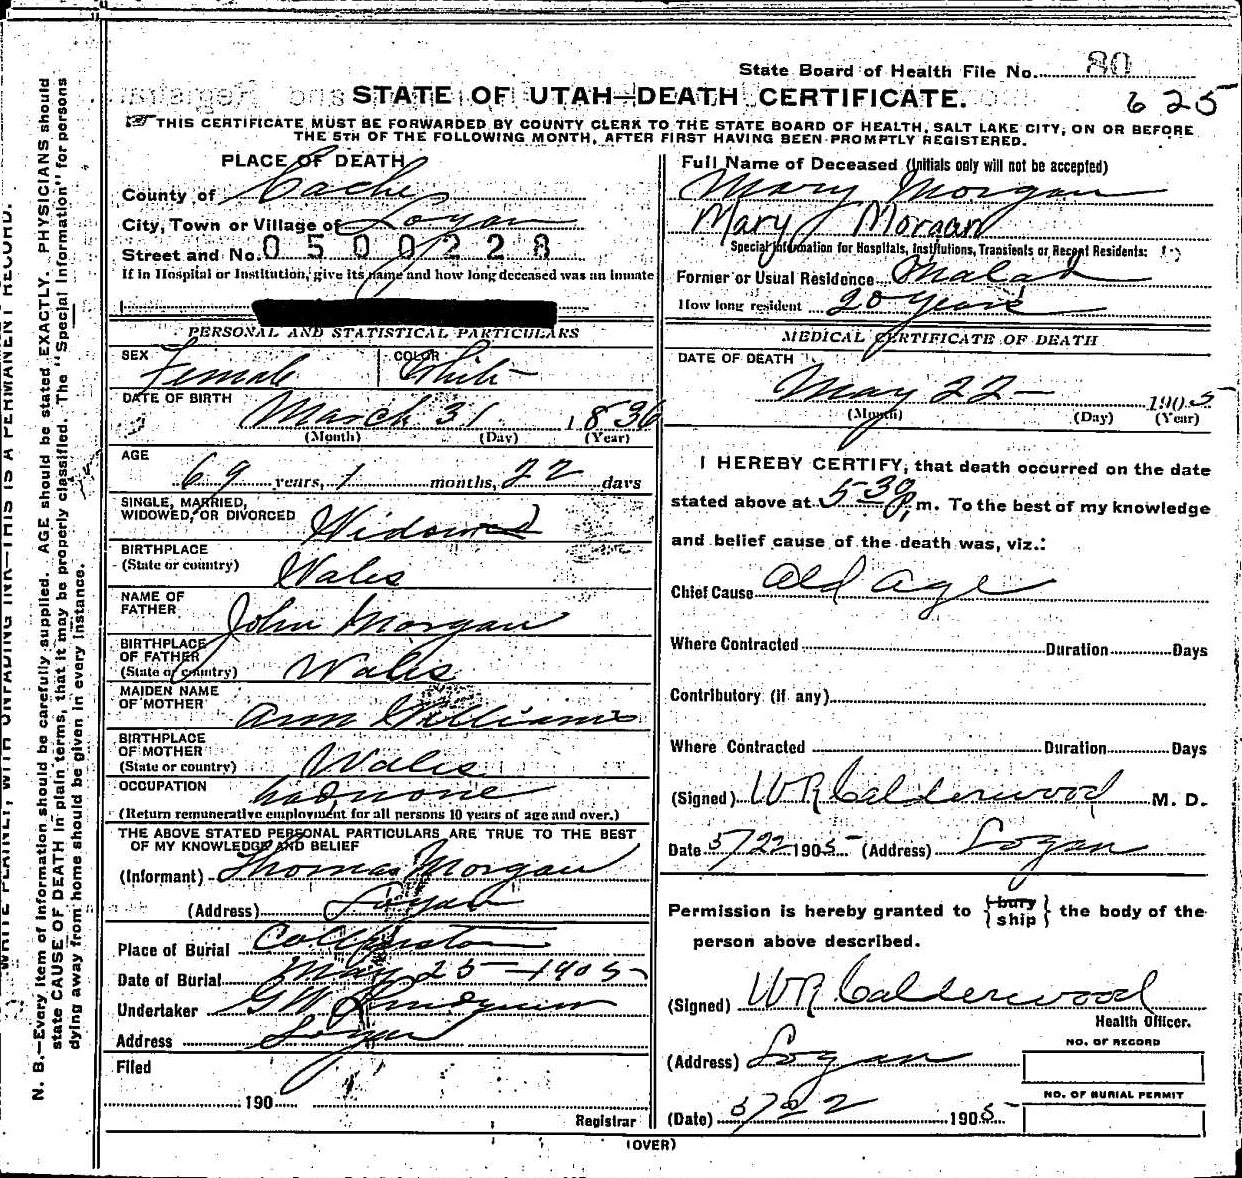 State Board of Health File No. 80
STATE OF UTAH—DEATH CERTIFICATE.
625
THIS CERTIFICATE MUST BE FORWARDED BY COUNTY CLERK TO THE STATE BOARD OF HEALTH, SALT LAKE CITY, ON OR BEFORE
THE 5TH OF THE FOLLOWING MONTH, AFTER FIRST HAVING BEEN PROMPTLY REGISTERED.
PLACE OF DEATH
County of Cache
City, Town or Village of Logan
Street and No. 0500228
If in Hospital or Institution, give its name and how long deceased was an inmate
PERSONAL AND STATISTICAL PARTICULARS
SEX Female COLOR White
DATE OF BIRTH March 31 1836
(Month) (Day) (Year)
AGE
69 years, 1 months, 22 days
SINGLE, MARRIED,
WIDOWED, OR DIVORCED Widowed
BIRTHPLACE
(State or country) Wales
NAME OF
FATHER John Morgan
BIRTHPLACE
OF FATHER
(State or country) Wales
MAIDEN NAME
OF MOTHER Ann Williams
BIRTHPLACE
OF MOTHER
(State or country) Wales
OCCUPATION had none
(Return remunerative employment for all persons 10 years of age and over.)
THE ABOVE STATED PERSONAL PARTICULARS ARE TRUE TO THE BEST
OF MY KNOWLEDGE AND BELIEF
(Informant) Thomas Morgan
(Address) Logan
Place of Burial
Date of Burial May 25 - 1905
Undertaker G W
Address Logan
Filed
190
Registrar
Full Name of Deceased (Initials only will not be accepted)
Mary Morgan
Mary Morgan
Special Information for Hospitals, Institutions, Transients or Recent Residents:
Former or Usual Residence Malad
How long resident 20 years
MEDICAL CERTIFICATE OF DEATH
DATE OF DEATH
May 22 - 1905
(Month) (Day) (Year)
I HEREBY CERTIFY, that death occurred on the date
stated above at 5-30 p.m. To the best of my knowledge
and belief cause of the death was, viz.:
Chief Cause Old age
Where Contracted Duration Days
Contributory (if any)
Where Contracted Duration Days
(Signed) WR Calderwood M. D.
Date 5/22 1905 (Address) Logan
Permission is hereby granted to {bury
ship} the body of the
person above described.
(Signed) WR Calderwood
Health Officer.
(Address) Logan
NO. OF RECORD
NO. OF BURIAL PERMIT
(Date) 5/22 1905
(OVER)
N. B.—Every item of information should be carefully supplied. AGE should be stated EXACTLY. PHYSICIANS should
state CAUSE OF DEATH in plain terms, that it may be properly classified. The "Special Information" for persons
dying away from home should be given in every instance.
WRITE PLAINLY, WITH UNFADING INK—THIS IS A PERMANENT RECORD.